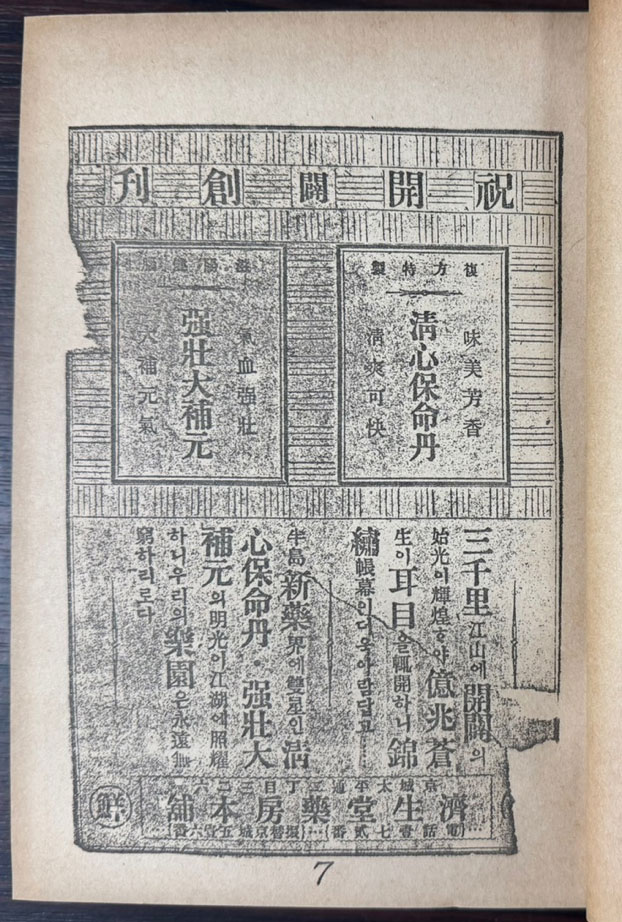 祝開闢創刊
復方特製
味美芳香
清心保命丹
清爽可快
氣血强壯
强壯大補元
大補元氣
三千里江山에開闢의
始光이輝煌ᄒᆞ야億兆蒼
生이耳目을輒開하니錦
繡帳幕의더욱아람답고……
半島新藥界에雙星인淸
心保命丹・强壯大
補元의明光이江湖에照耀
하니우리의樂園은永遠無
窮하리로다
京城太平通二丁目三二六
濟生堂藥房本舖
電話壹七貳番
振替京城五壹六番
鮮
7